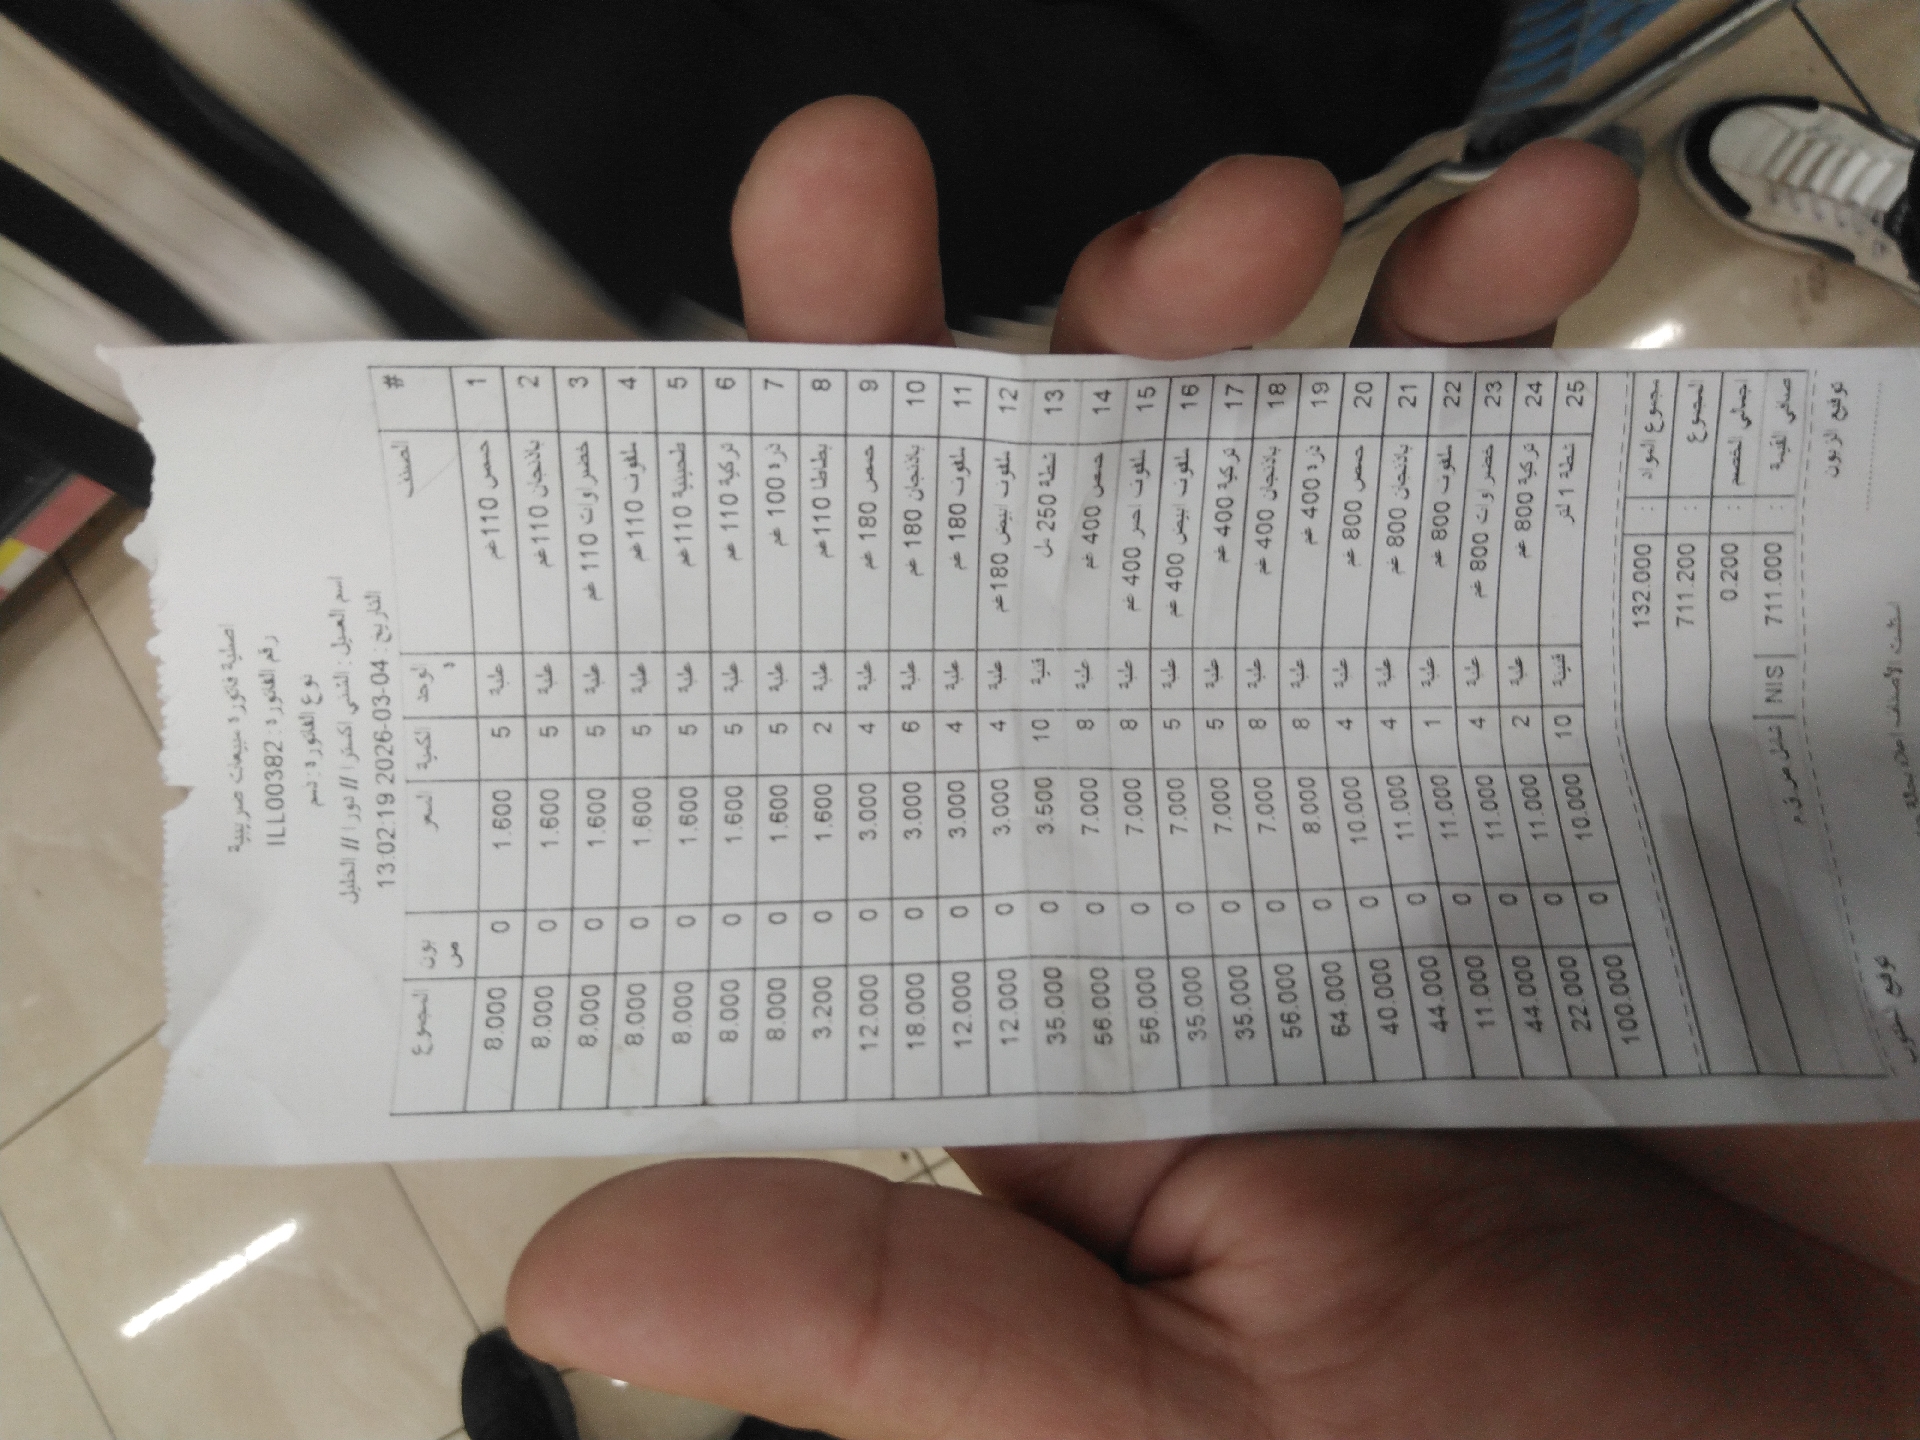 اصلية فاتورة مبيعات ضريبية
رقم الفاتورة : ILL00382
نوع الفاتورة : ذمم
اسم العميل : التنتي اكسترا // دورا // الخليل
التاريخ : 2026-03-04 13:02:19
# الصنف الوحدة الكمية السعر بونص المجموع
1 حمص 110غم علبة 5 1.600 0 8.000
2 باذنجان 110غم علبة 5 1.600 0 8.000
3 خضراوات 110 غم علبة 5 1.600 0 8.000
4 ملفوف 110غم علبة 5 1.600 0 8.000
5 طحينية 110غم علبة 5 1.600 0 8.000
6 تركية 110 غم علبة 5 1.600 0 8.000
7 ذرة 100 غم علبة 5 1.600 0 8.000
8 بطاطا 110غم علبة 2 1.600 0 3.200
9 حمص 180 غم علبة 4 3.000 0 12.000
10 باذنجان 180 غم علبة 6 3.000 0 18.000
11 ملفوف 180 غم علبة 4 3.000 0 12.000
12 ملفوف ابيض 180غم علبة 4 3.000 0 12.000
13 شطة 250 مل قنينة 10 3.500 0 35.000
14 حمص 400 غم علبة 8 7.000 0 56.000
15 ملفوف احمر 400 غم علبة 8 7.000 0 56.000
16 ملفوف ابيض 400 غم علبة 5 7.000 0 35.000
17 تركية 400 غم علبة 5 7.000 0 35.000
18 باذنجان 400 غم علبة 8 7.000 0 56.000
19 ذرة 400 غم علبة 8 8.000 0 64.000
20 حمص 800 غم علبة 4 10.000 0 40.000
21 باذنجان 800 غم علبة 4 11.000 0 44.000
22 ملفوف 800 غم علبة 1 11.000 0 11.000
23 خضراوات 800 غم علبة 4 11.000 0 44.000
24 تركية 800 غم علبة 2 11.000 0 22.000
25 شطة 1 لتر قنينة 10 10.000 0 100.000
مجموع المواد : 132.000
المجموع : 711.200
اجمالي الخصم : 0.200
صافي القيمة : 711.000 NIS
توقيع الزبون
توقيع المندوب